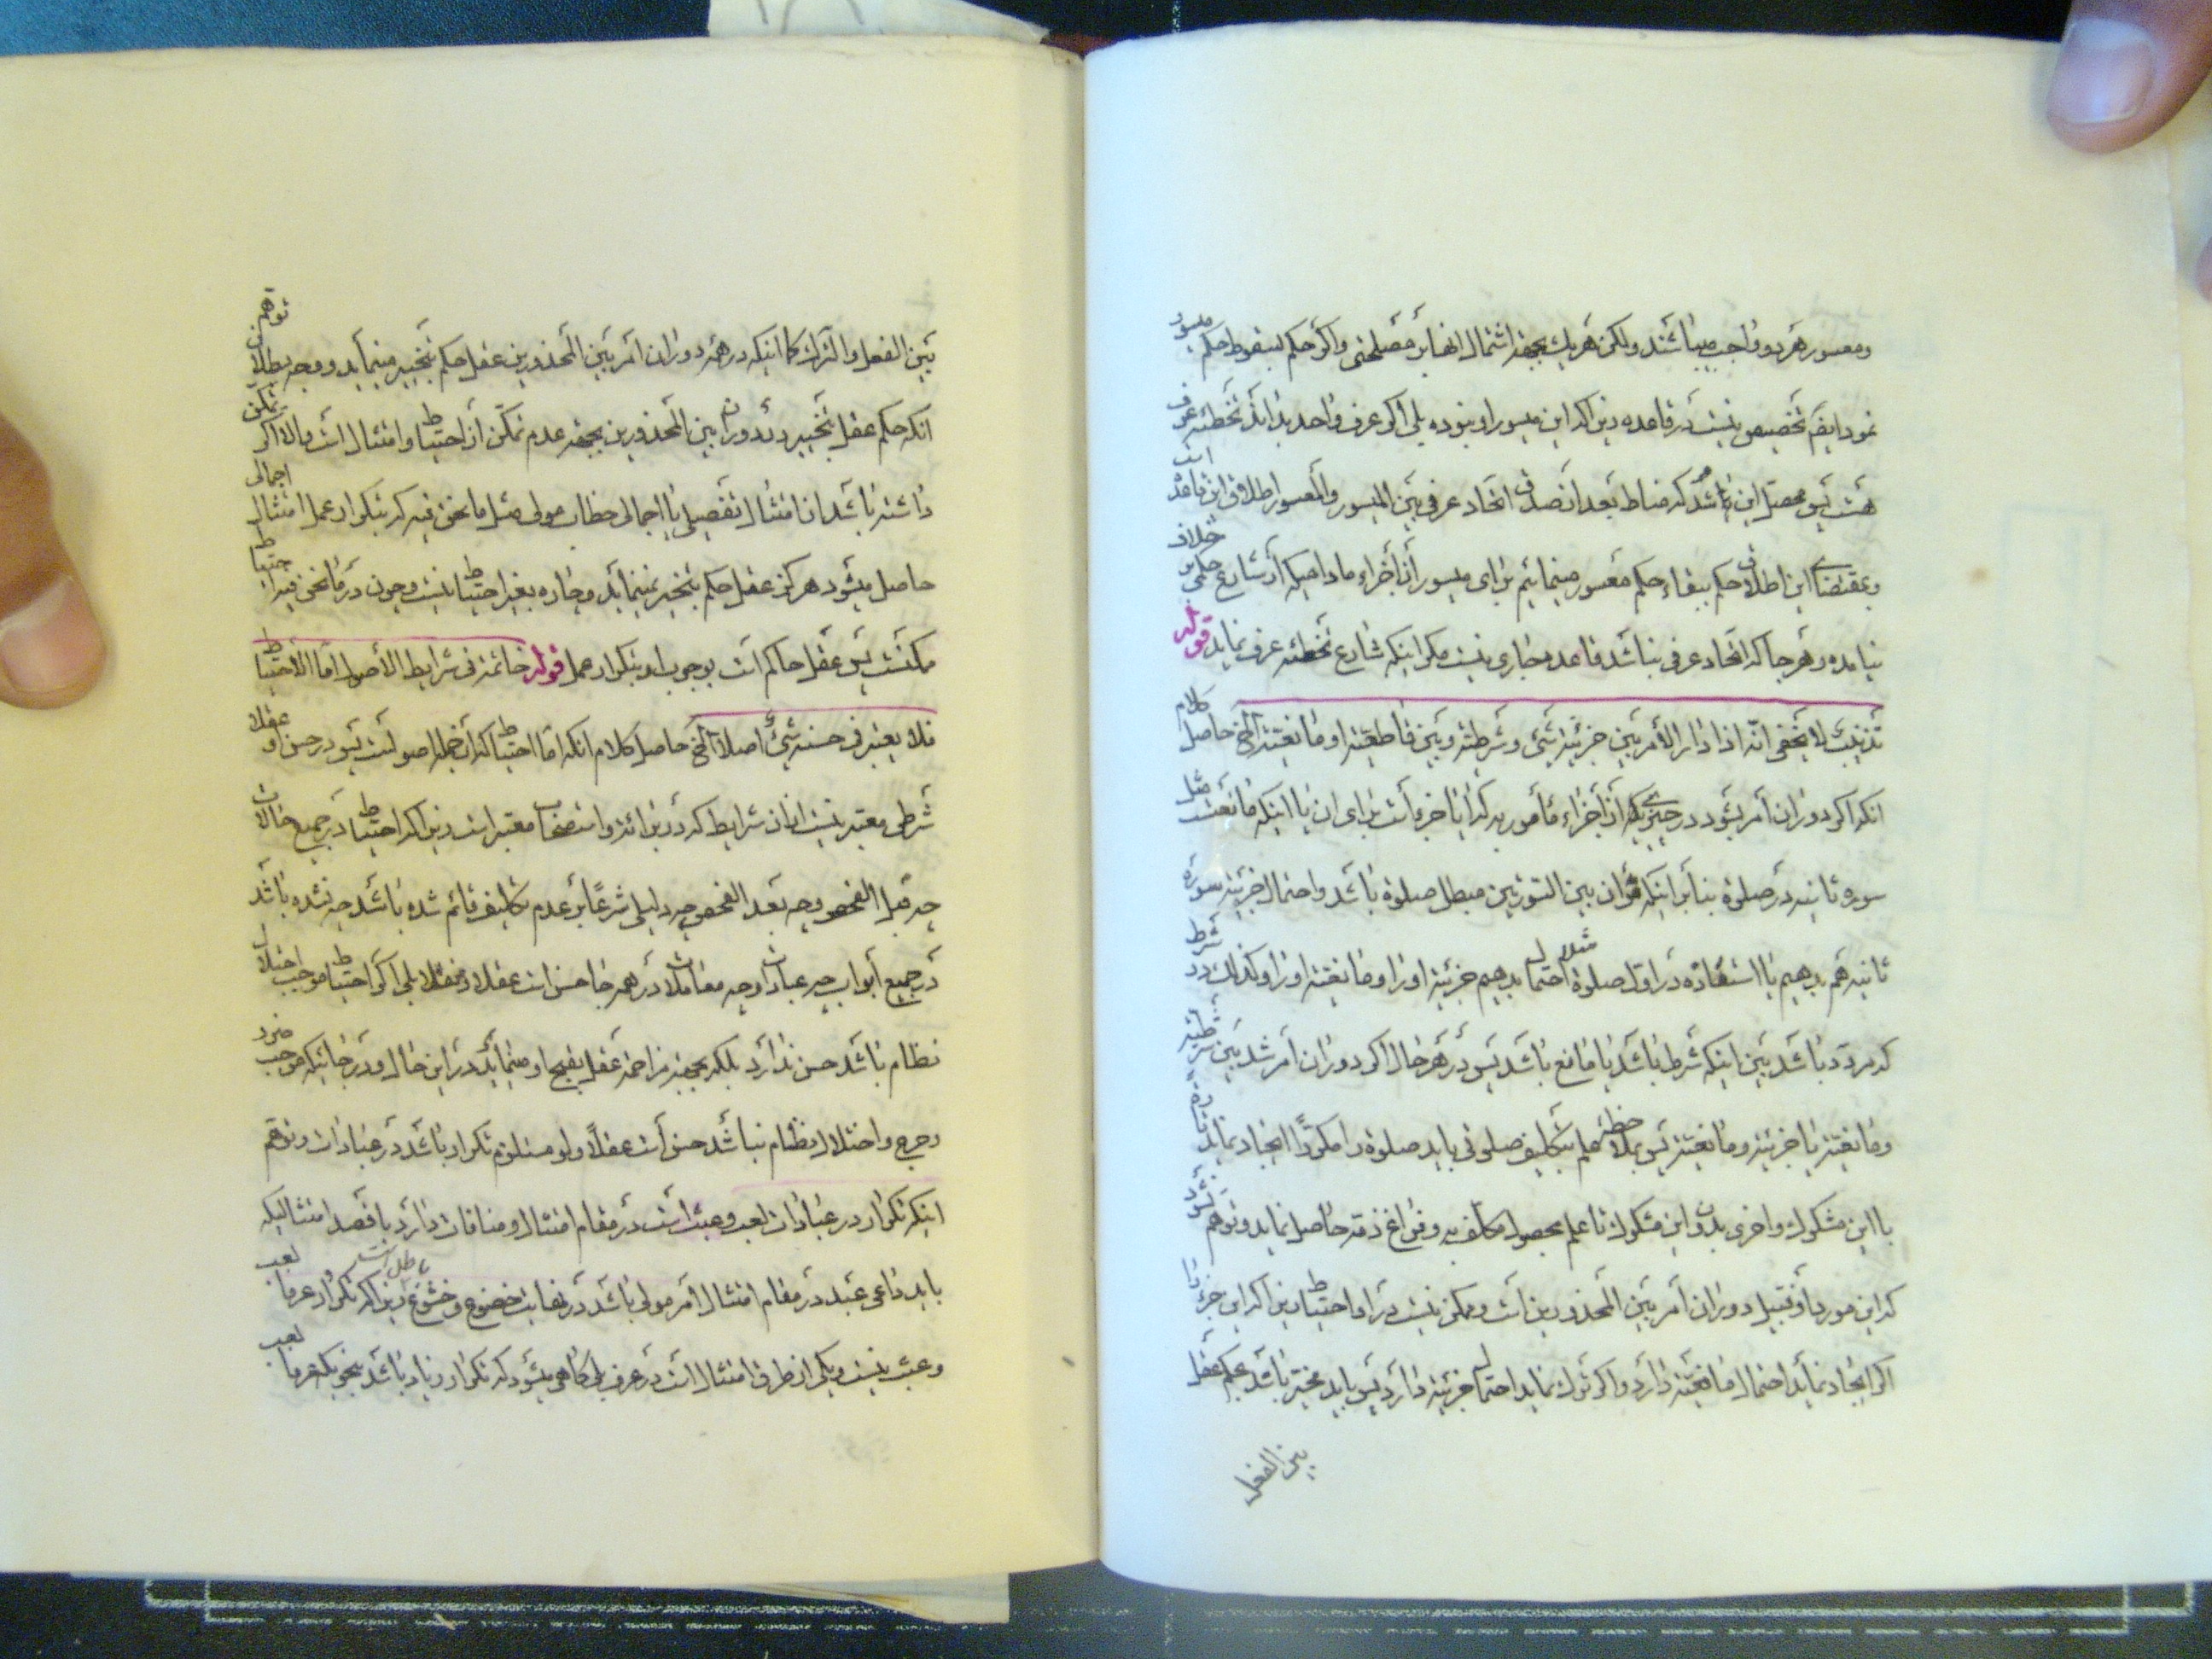 ومعسور هر دو واجب میباشند ولکن هریك بجهة اشتمال انها بر مصلحتی واکر حکم بسقوط حکم میسور
نمود اینهم تخصیص نیست در قاعده زیرا که این میسور او نبوده بلی اکر عرف واحد بداند تخطئه عرف
است پس محصل این شد که مناط بعد از صدق اتحاد عرفی بین المیسور والمعسور اطلاق این قاعده
وبمقتضای این اطلاق حکم ببقاء حکم معسور مینمائیم برای میسور از اجزاء مادامیکه از شارع حکمی بر خلاف
نیامده وهر جا که اتحاد عرفی نباشد قاعده جاری نیست مکر اینکه شارع تخطئه عرف نماید قوله
تذنیب لا یخفی انّه اذا دار الأمر بین جزئیة شیئ وشرطیته وبین قاطعیته او مانعیته الخ حاصل کلام
انکه اکر دوران امر بشود در چیزیکه از اجزاء مأمور به که ایا جزء است برای ان یا اینکه مانعست مثل
سوره ثانیه در صلوة بنابر اینکه قران بین السورتین مبطل صلوة باشد واحتمال جزئیة سوره
ثانیه هم بدهیم یا استعاذه در اول صلوة مثلا احتمال بدهیم جزئیة او را ومانعیة او را وکذلك در شرط
که مردّد باشد بین اینکه شرط باشد یا مانع باشد پس در هر حال اکر دوران امر شد بین شرطیة
ومانعیة یا جزئیة ومانعیة پس بملاحظه علم بتکلیف صلوتی باید صلوة را مکررًا ایجاد نماید تارة
با این مشکوك واخری بدون این مشکوك تا علم بحصول مکلف به وفراغ ذمه حاصل نماید وتوهم نشود
که این مورد از قبیل دوران امر بین المحذورین است وممکن نیست در او احتیاط زیرا که این جزء را
اکر ایجاد نماید احتمال مانعیة دارد واکر ترك نماید احتمال جزئیة دارد پس باید مخیّر باشد بحکم عقل
بین الفعل
بین الفعل والترك کما اینکه در همه دوران امر بین المحذورین عقل حکم بتخییر مینماید ووجه بطلان توهم
انکه حکم عقل بتخییر در دوران بین المحذورین بجهة عدم تمکّن از احتیاط وامتثال است والا اکر تمکن
داشته باشد از امتثال تفصیلی یا اجمالی خطاب مولی مثل ما نحن فیه که بتکرار عمل امتثال اجمالی
حاصل میشود هرکز عقل حکم بتخییر نمینماید وچاره بغیر احتیاط نیست وچون در ما نحن فیه احتیاط
ممکنست پس عقل حاکم است بوجوب او بتکرار عمل قوله خاتمة فی شرایط الأصول اما الاحتیاط
فلا یعتبر فی حسنه شیئ اصلا الخ حاصل کلام انکه اما احتیاط که از جمله اصول است پس در حسن او عقلا
شرطی معتبر نیست از ان شرایط که در برائة واستصحاب معتبر است زیرا که احتیاط در جمیع حالات
چه قبل الفحص وچه بعد الفحص چه دلیلی شرعًا بر عدم تکلیف قائم شده باشد چه نشده باشد
در جمیع ابواب چه عبادات وچه معاملات در همه جا حسن است عقلا ونقلا بلی اکر احتیاط موجب اختلال
نظام باشد حسن ندارد بلکه بجهة مزاحمة عقل تقبیح او مینماید در این حال ودر جائیکه موجب ضرر
وحرج واختلال نظام نباشد حسن است عقلاً ولو مستلزم تکرار باشد در عبادات وتوهم
اینکه تکرار در عبادات لعب وعبث است در مقام امتثال ومنافات دارد با قصد امتثالیکه
باید داعی عبد در مقام امتثال امر مولی باشد در نهایت خضوع وخشوع باطل است زیرا که تکرار عرفا لعب
وعبث نیست ویکی از طرق امتثال است در عرف بلی کاهی میشود که تکرار زیاد باشد بنحویکه عرفا لعب